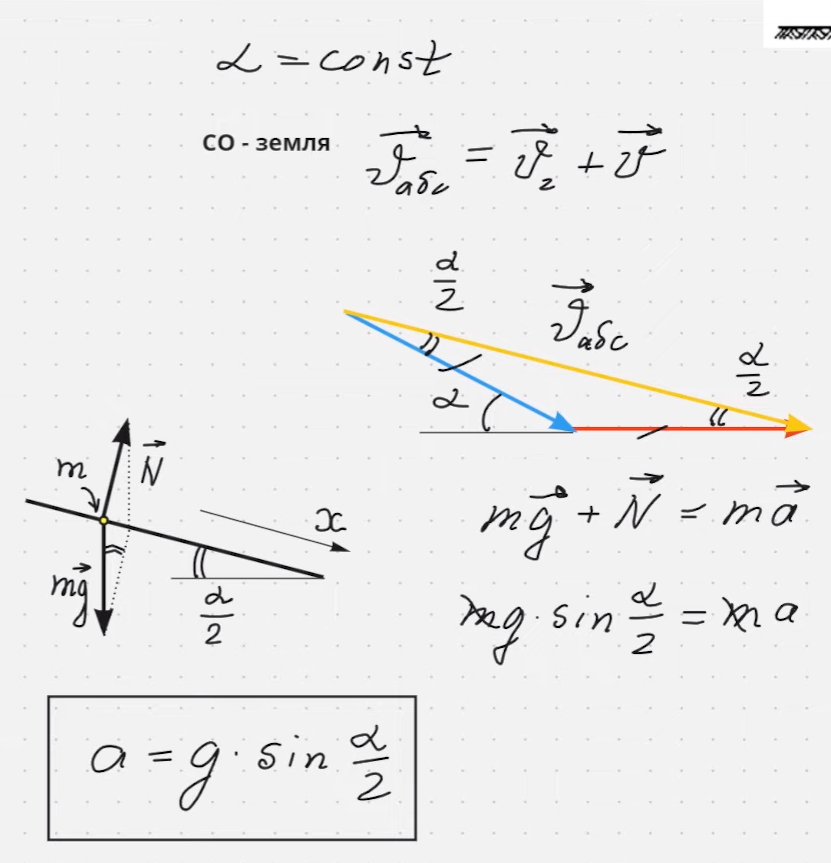 α = const
СО - земля
v⃗абс = v⃗г + v⃗
α/2
v⃗абс
α/2
α
m
N⃗
x
mg⃗
α/2
mg⃗ + N⃗ = ma⃗
mg · sin α/2 = ma
a = g · sin α/2